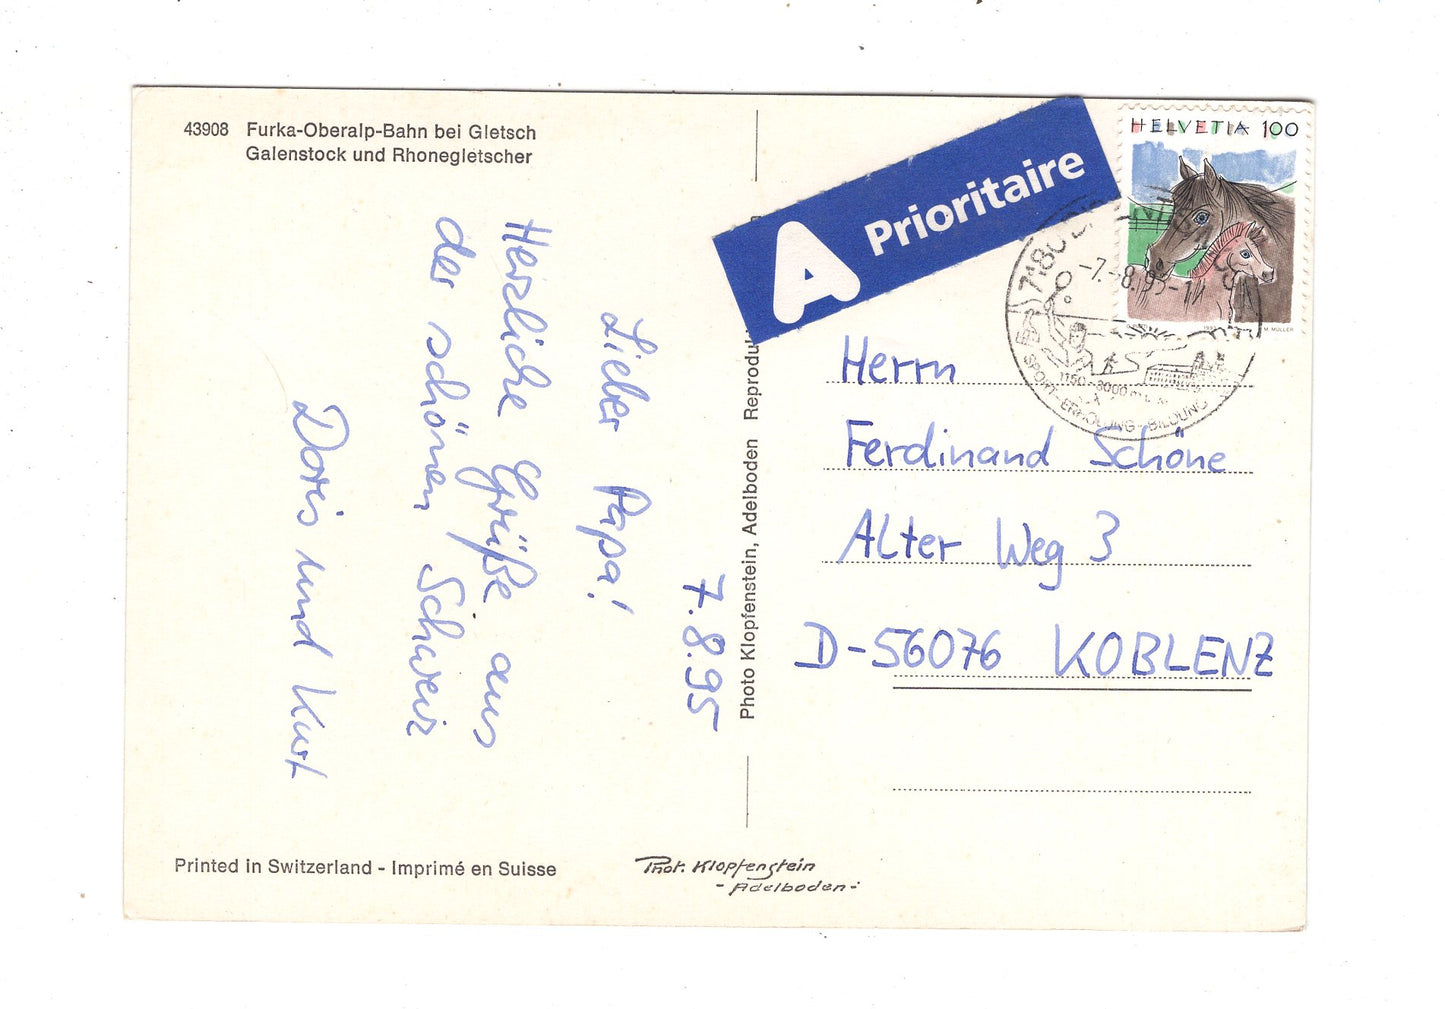 43908 Furka-Oberalp-Bahn bei Gletsch
Galenstock und Rhonegletscher
7.8.95
Lieber Papa!
Herzliche Grüße aus
der schönen Schweiz
Doris und Kurt
Printed in Switzerland - Imprimé en Suisse
Phot. Klopfenstein
- Adelboden -
Photo Klopfenstein, Adelboden
A Prioritaire
HELVETIA 100
M. MÜLLER
7180
-7.-8.95-
1150-3000 m
SPORT-ERHOLUNG-BILDUNG
Herrn
Ferdinand Schöne
Alter Weg 3
D-56076 KOBLENZ